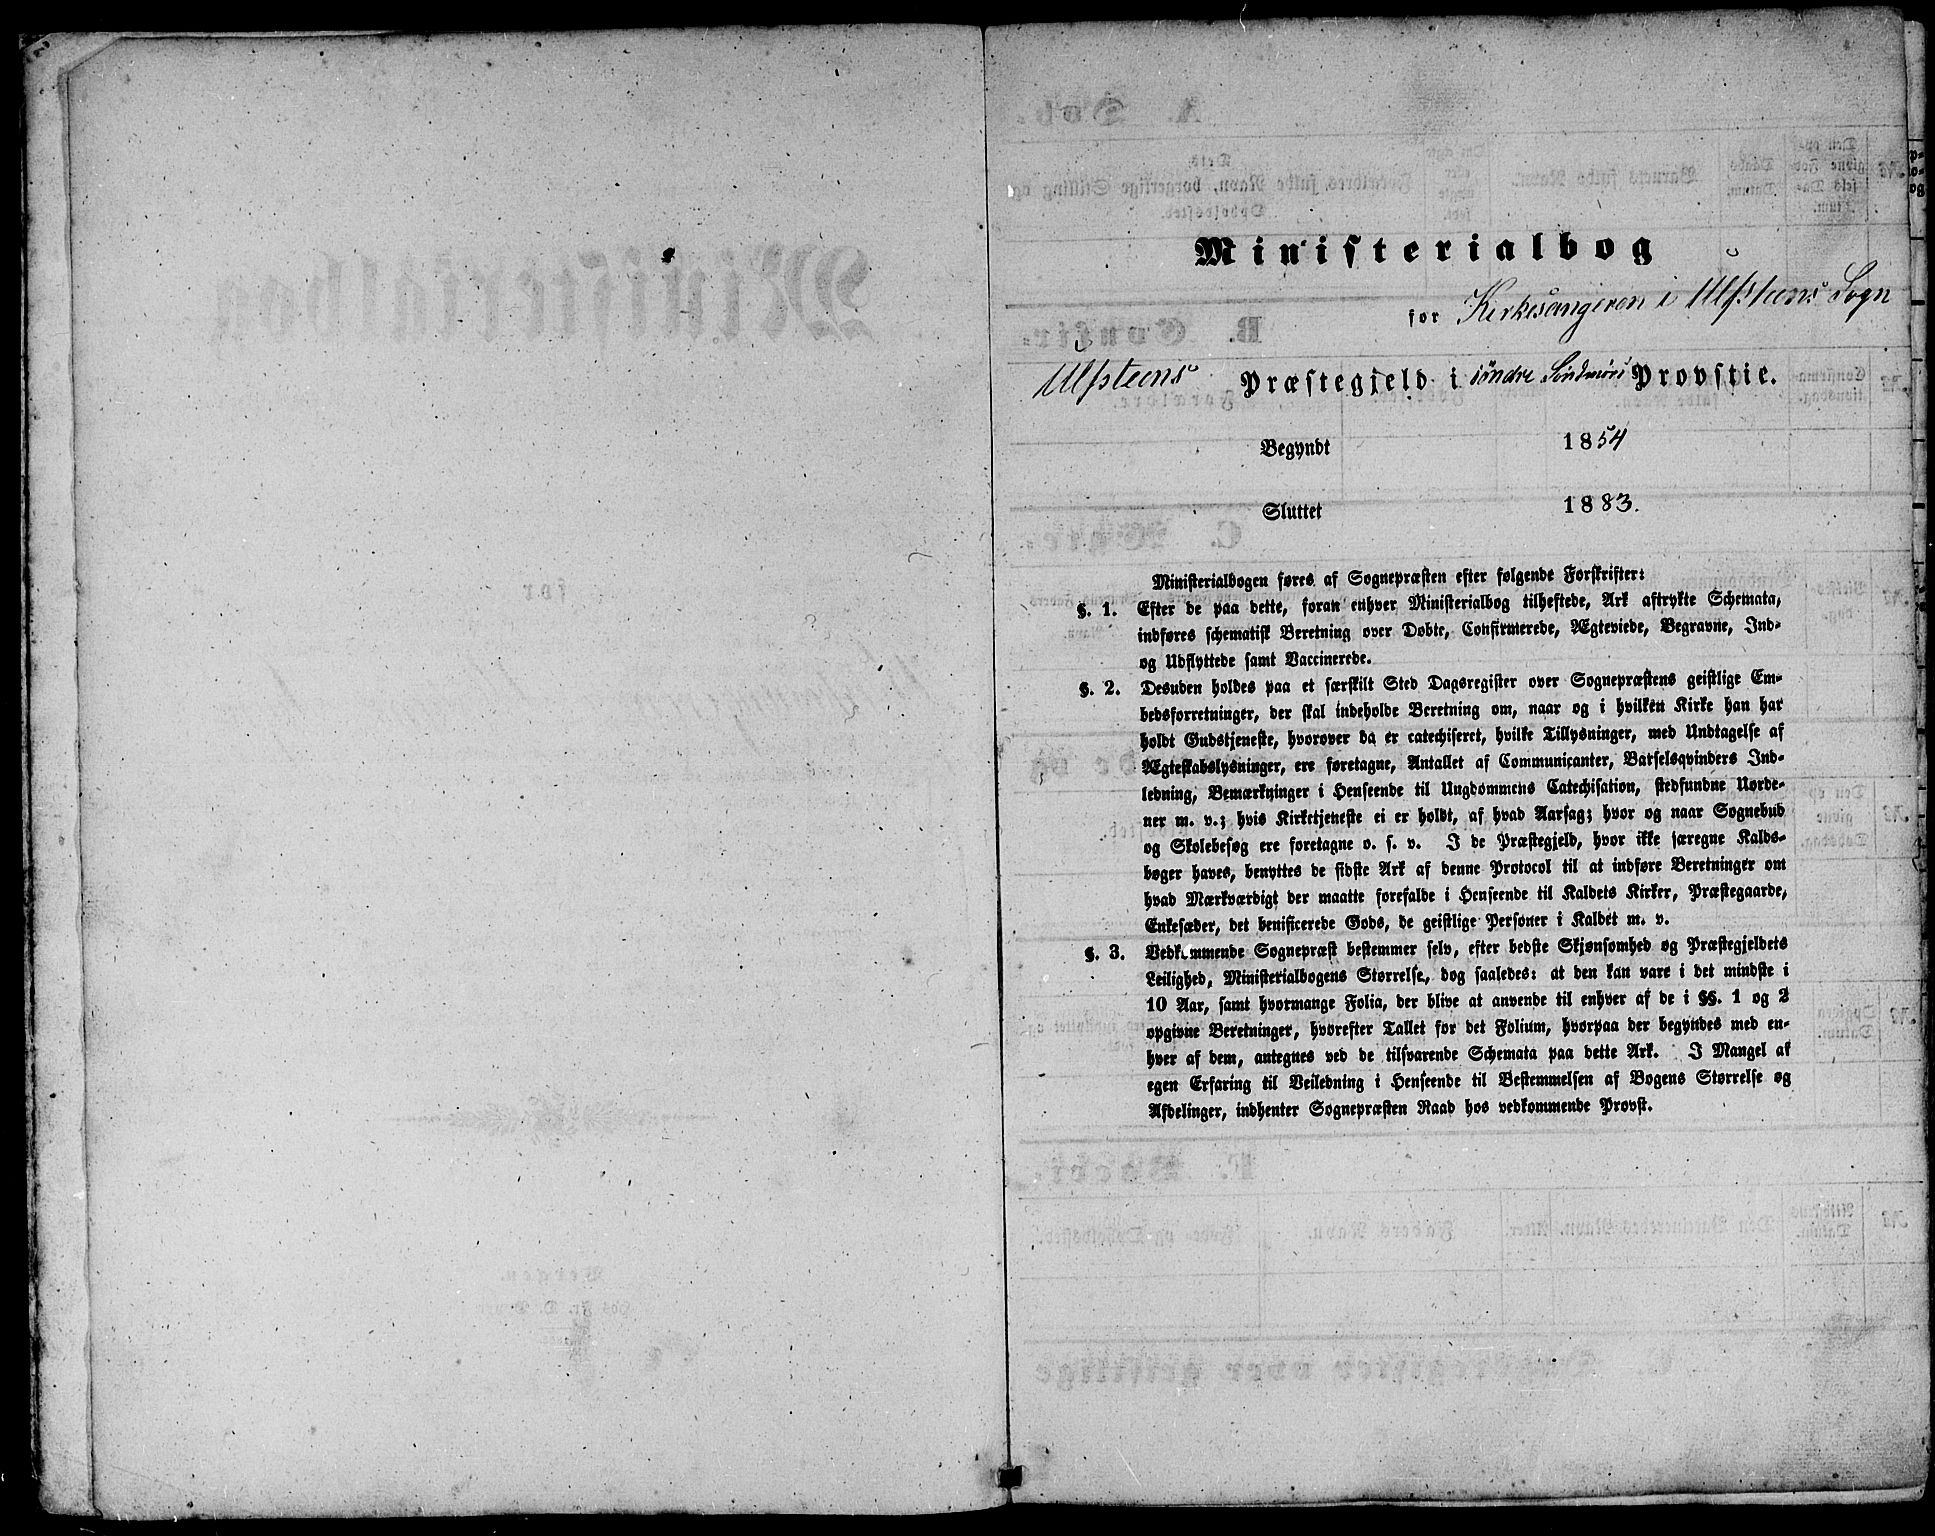 Ministerialbog
for Kirkesangeren i Ulfsteens Sogn
Ulfsteens Præstegjeld i söndre Söndmörs Provstie.
Begyndt 1854
Sluttet 1883.
Ministerialbogen føres af Sognepræsten efter følgende Forskrifter:
§. 1. Efter de paa dette, foran enhver Ministerialbog tilheftede, Ark aftrykte Schemata,
indføres schematisk Beretning over Døbte, Confirmerede, Ægteviede, Begravne, Ind-
og Udflyttede samt Vaccinerede.
§. 2. Desuden holdes paa et særskilt Sted Dagsregister over Sognepræstens geistlige Em-
bedsforretninger, der skal indeholde Beretning om, naar og i hvilken Kirke han har
holdt Gudstjeneste, hvorover da er catechiseret, hvilke Tillysninger, med Undtagelse af
Ægteskabslysninger, ere foretagne, Antallet af Communicanter, Barselqvinders Ind-
ledning, Bemærkninger i Henseende til Ungdommens Catechisation, stedfundne Uorde-
ner m. v.; hvis Kirketjeneste ei er holdt, af hvad Aarsag; hvor og naar Sognebud
og Skolebesøg ere foretagne o. s. v. I de Præstegjeld, hvor ikke særegne Kalds-
bøger haves, benyttes de sidste Ark af denne Protocol til at indføre Beretninger om
hvad Mærkværdigt der maatte forefalde i Henseende til Kaldets Kirker, Præstegaarde,
Enkesæder, det benificerede Gods, de geistlige Personer i Kaldet m. v.
§. 3. Vedkommende Sognepræst bestemmer selv, efter bedste Skjønsomhed og Præstegjeldets
Leilighed, Ministerialbogens Størrelse, dog saaledes: at den kan vare i det mindste i
10 Aar, samt hvormange Folia, der blive at anvende til enhver af de i §§. 1 og 2
opgivne Beretninger, hvorefter Tallet for det Folium, hvorpaa der begyndes med en-
hver af dem, antegnes ved de tilsvarende Schemata paa dette Ark. I Mangel af
egen Erfaring til Veiledning i Henseende til Bestemmelsen af Bogens Størrelse og
Afdelinger, indhenter Sognepræsten Raad hos vedkommende Provst.